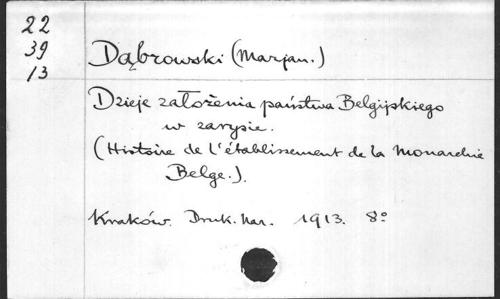 22
39
13
Dąbrowski (Marjan.)
Dzieje założenia państwa Belgijskiego
w zarysie.
(Histoire de l'établissement de la Monarchie
Belge.).
Kraków. Druk. Nar. 1913. 8°